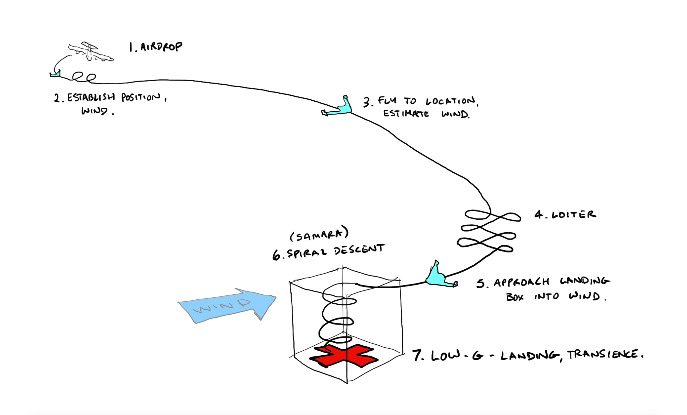 1. AIRDROP
2. ESTABLISH POSITION,
WIND.
3. FLY TO LOCATION,
ESTIMATE WIND.
4. LOITER
5. APPROACH LANDING
BOX INTO WIND.
(SAMARA)
6. SPIRAL DESCENT
WIND
7. LOW-G-LANDING, TRANSIENCE.